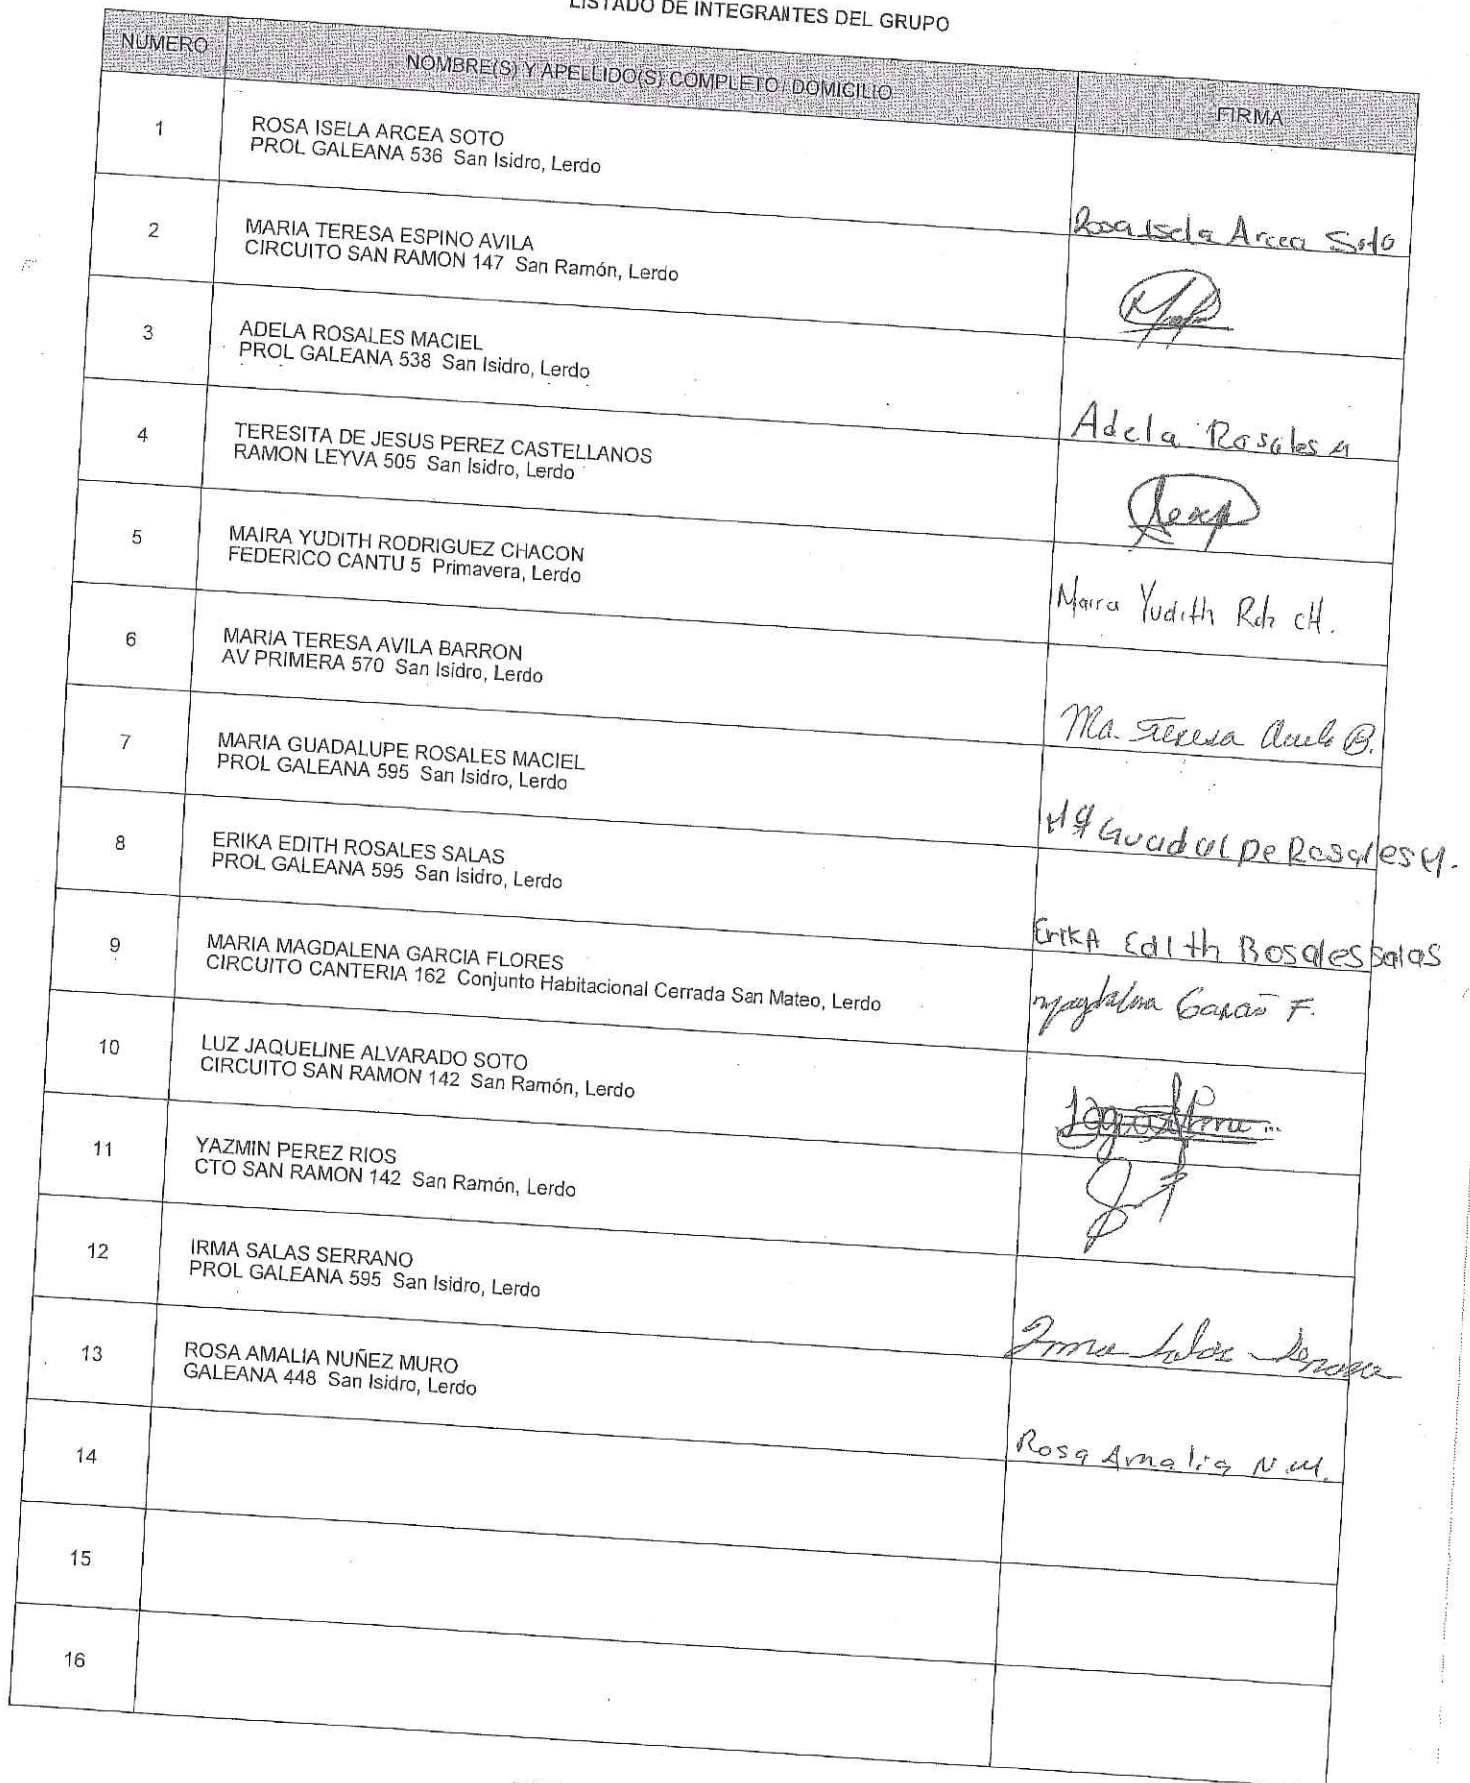 LISTADO DE INTEGRANTES DEL GRUPO
NUMERO NOMBRE(S) Y APELLIDO(S) COMPLETO/ DOMICILIO FIRMA
1 ROSA ISELA ARCEA SOTO
PROL GALEANA 536 San Isidro, Lerdo
Rosa Isela Arcea Soto
2 MARIA TERESA ESPINO AVILA
CIRCUITO SAN RAMON 147 San Ramón, Lerdo
3 ADELA ROSALES MACIEL
PROL GALEANA 538 San Isidro, Lerdo
Adela Rosales M
4 TERESITA DE JESUS PEREZ CASTELLANOS
RAMON LEYVA 505 San Isidro, Lerdo
5 MAIRA YUDITH RODRIGUEZ CHACON
FEDERICO CANTU 5 Primavera, Lerdo
Maira Yudith Rdz cH.
6 MARIA TERESA AVILA BARRON
AV PRIMERA 570 San Isidro, Lerdo
Ma. Teresa Avila B.
7 MARIA GUADALUPE ROSALES MACIEL
PROL GALEANA 595 San Isidro, Lerdo
Mª Guadalpe Rosales M.
8 ERIKA EDITH ROSALES SALAS
PROL GALEANA 595 San Isidro, Lerdo
ErikA Edith Rosales Salas
9 MARIA MAGDALENA GARCIA FLORES
CIRCUITO CANTERIA 162 Conjunto Habitacional Cerrada San Mateo, Lerdo
Magdalena Garcia F.
10 LUZ JAQUELINE ALVARADO SOTO
CIRCUITO SAN RAMON 142 San Ramón, Lerdo
11 YAZMIN PEREZ RIOS
CTO SAN RAMON 142 San Ramón, Lerdo
12 IRMA SALAS SERRANO
PROL GALEANA 595 San Isidro, Lerdo
Irma Salas Serrano
13 ROSA AMALIA NUÑEZ MURO
GALEANA 448 San Isidro, Lerdo
Rosa Amalia N.M.
14
15
16